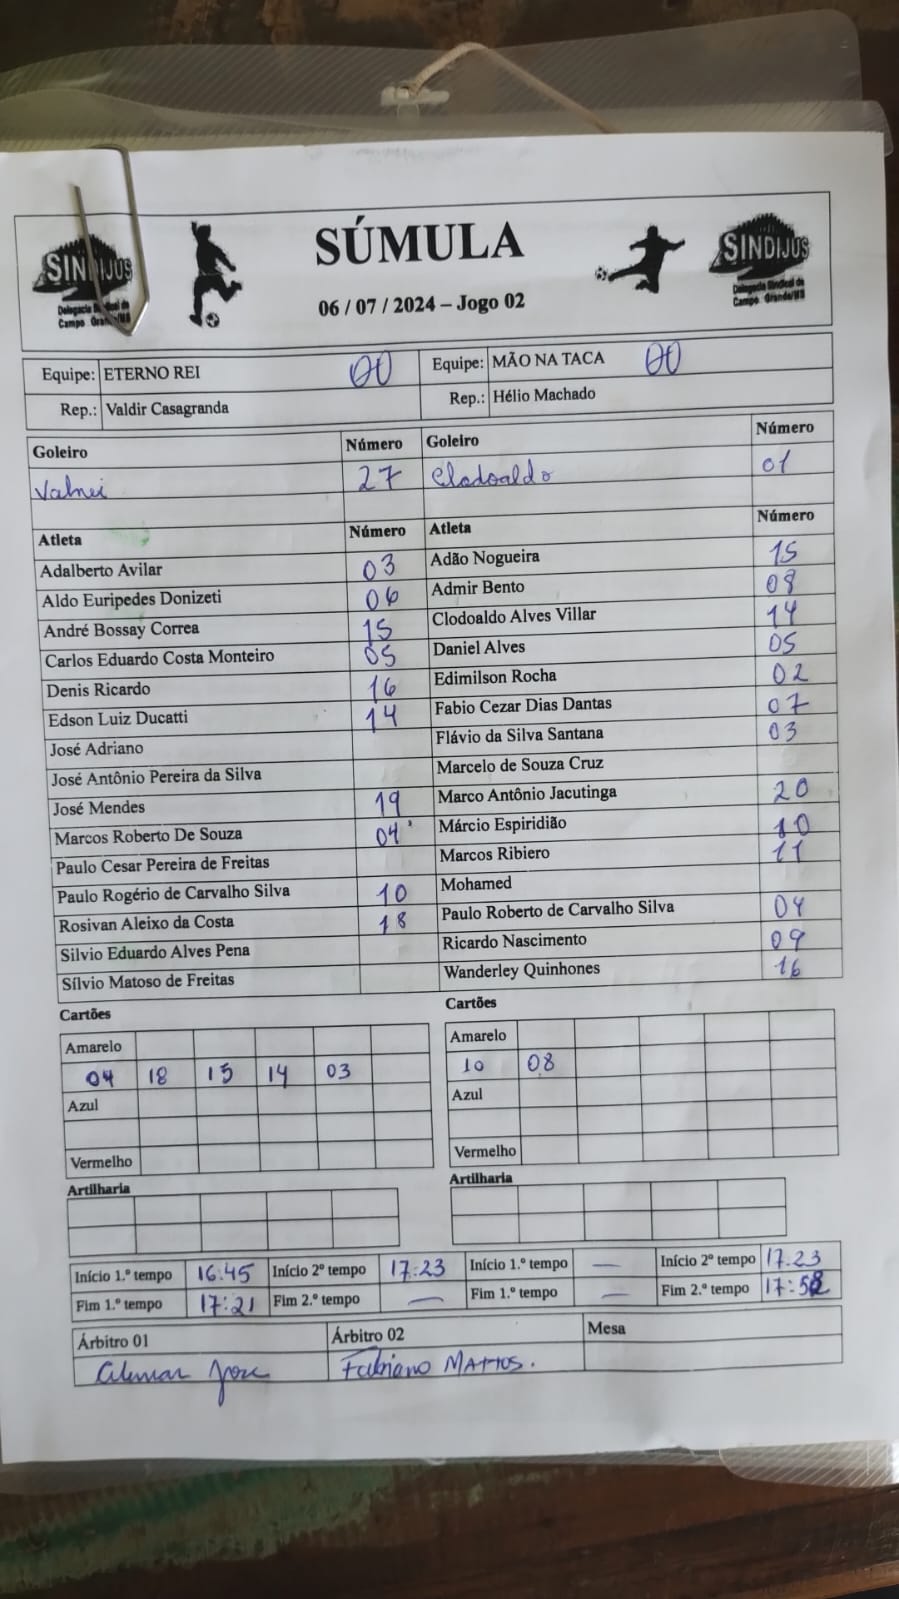 SÚMULA
06 / 07 / 2024 – Jogo 02
SINDIJUS
Delegacia Sindical de
Campo Grande/MS
SINDIJUS
Delegacia Sindical de
Campo Grande/MS
Equipe: ETERNO REI 00 Equipe: MÃO NA TACA 00
Rep.: Valdir Casagranda Rep.: Hélio Machado
Goleiro Número Goleiro Número
Valnei 27 Clodoaldo 01
Atleta Número Atleta Número
Adalberto Avilar 03 Adão Nogueira 15
Aldo Euripedes Donizeti 06 Admir Bento 08
André Bossay Correa 15 Clodoaldo Alves Villar 14
Carlos Eduardo Costa Monteiro 05 Daniel Alves 05
Denis Ricardo 16 Edimilson Rocha 02
Edson Luiz Ducatti 14 Fabio Cezar Dias Dantas 07
José Adriano Flávio da Silva Santana 03
José Antônio Pereira da Silva Marcelo de Souza Cruz
José Mendes 19 Marco Antônio Jacutinga 20
Marcos Roberto De Souza 04 Márcio Espiridião 10
Paulo Cesar Pereira de Freitas Marcos Ribiero 11
Paulo Rogério de Carvalho Silva 10 Mohamed
Rosivan Aleixo da Costa 18 Paulo Roberto de Carvalho Silva 04
Silvio Eduardo Alves Pena Ricardo Nascimento 09
Sílvio Matoso de Freitas Wanderley Quinhones 16
Cartões Cartões
Amarelo Amarelo
04 18 15 14 03 10 08
Azul Azul
Vermelho Vermelho
Artilharia Artilharia
Início 1.º tempo 16:45 Início 2º tempo 17:23 Início 1.º tempo — Início 2º tempo 17:23
Fim 1.º tempo 17:21 Fim 2.º tempo — Fim 1.º tempo — Fim 2.º tempo
Árbitro 01 Árbitro 02 Mesa
Alemar José Fabiano MATTOS.